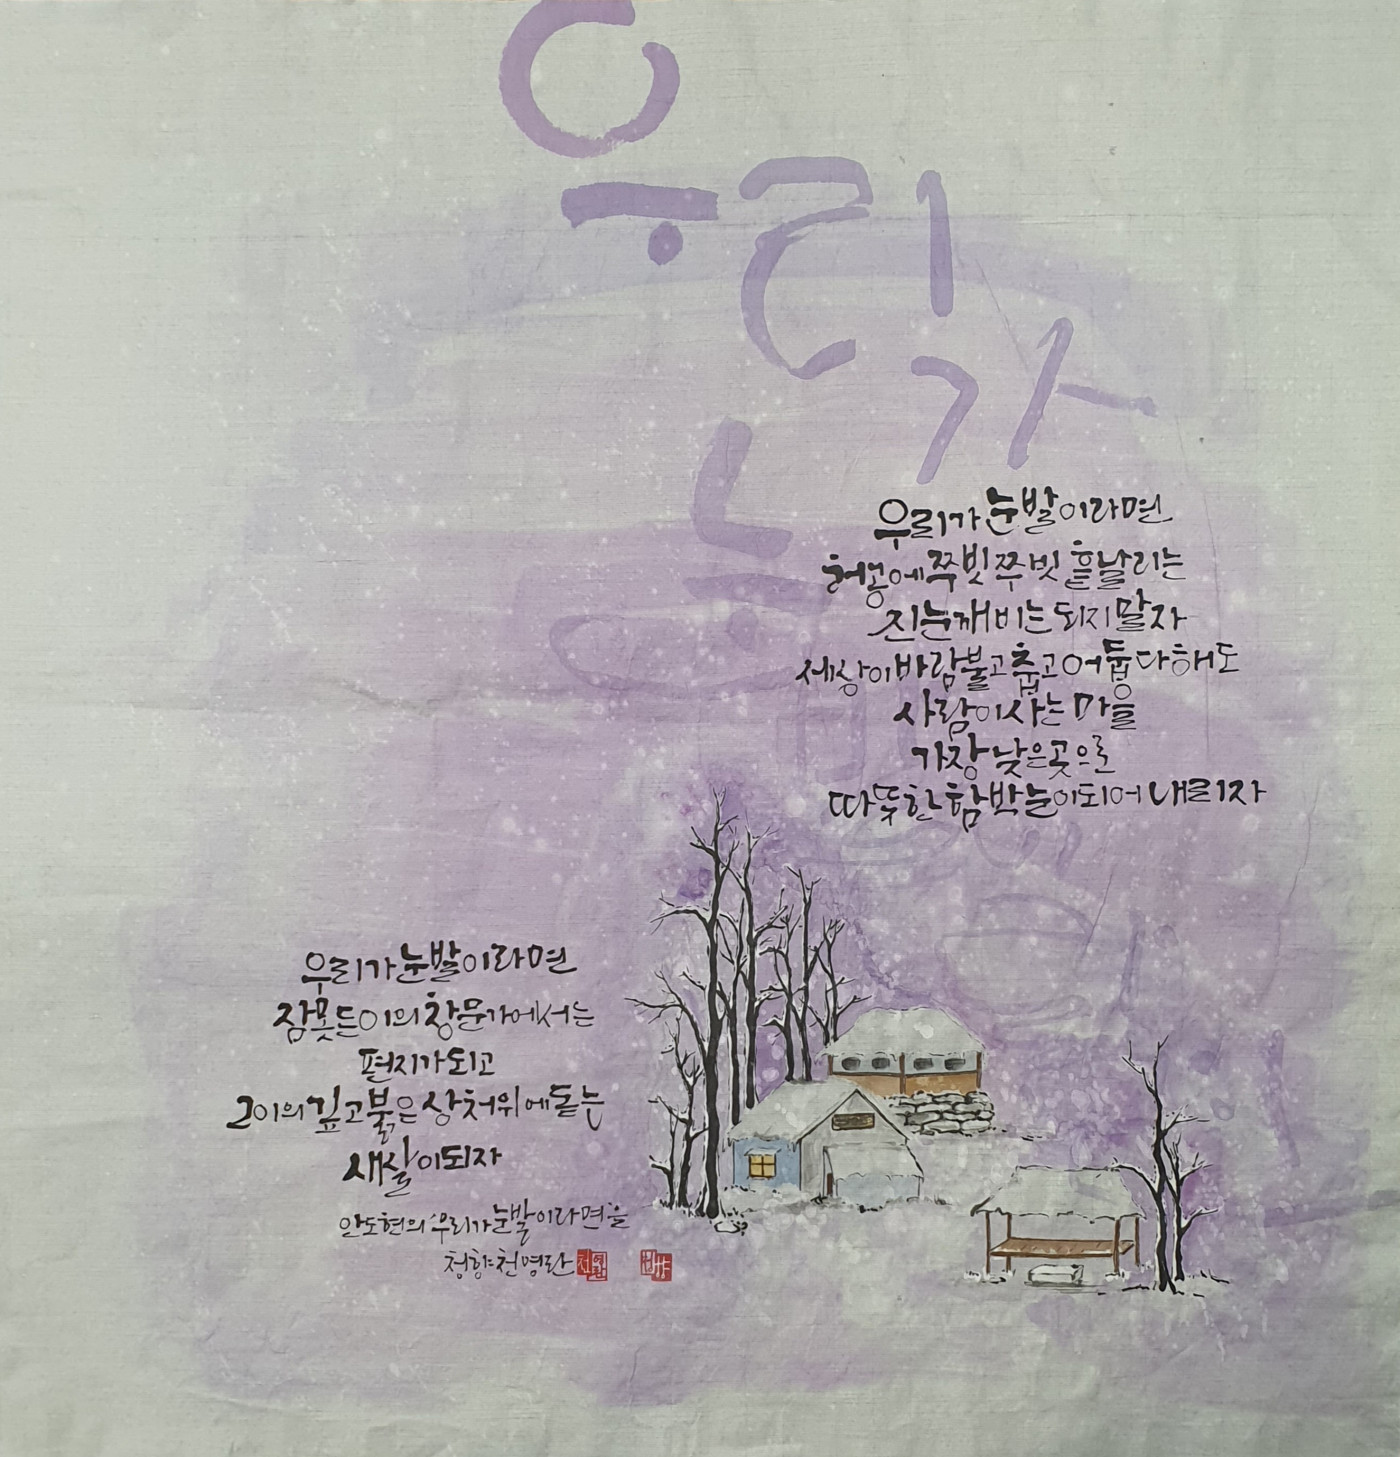 우리가
눈
우리가 눈발이라면
허공에 쭈빗쭈빗 흩날리는
진눈깨비는 되지 말자
세상이 바람 불고 춥고 어둡다 해도
사람이 사는 마을
가장 낮은 곳으로
따뜻한 함박눈이 되어 내리자
우리가 눈발이라면
잠 못 든 이의 창문가에서는
편지가 되고
그이의 깊고 붉은 상처 위에 돋는
새살이 되자
안도현의 '우리가 눈발이라면'을
청향 천명란